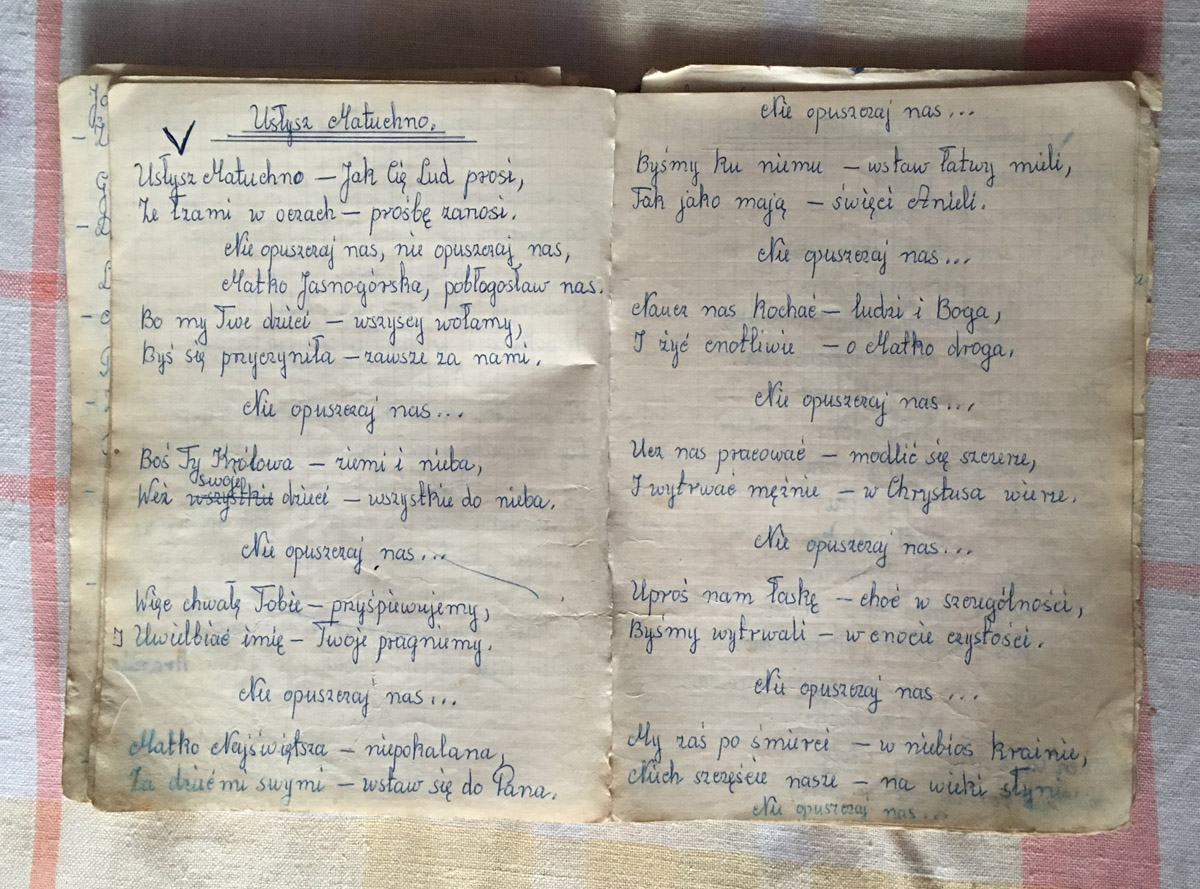 Usłysz Matuchno.
Usłysz Matuchno – Jak Cię Lud prosi,
Ze łzami w oczach – prośbę zanosi.
Nie opuszczaj nas, nie opuszczaj nas,
Matko Jasnogórska, pobłogosław nas.
Bo my Twe dzieci – wszyscy wołamy,
Byś się przyczyniła – zawsze za nami.
Nie opuszczaj nas...
Boś Ty Królowa – ziemi i nieba,
swoje
Weź wszystkie dzieci – wszystkie do nieba.
Nie opuszczaj nas...
Więc chwałę Tobie – przyśpiewujemy,
I Uwielbiać imię – Twoje pragniemy.
Nie opuszczaj nas...
Matko Najświętsza – niepokalana,
Za dziećmi swymi – wstaw się do Pana.
Nie opuszczaj nas...
Byśmy ku niemu – wstaw łatwy mieli,
Tak jako mają – święci Anieli.
Nie opuszczaj nas...
Naucz nas kochać – ludzi i Boga,
I żyć cnotliwie – o Matko droga,
Nie opuszczaj nas...
Ucz nas pracować – modlić się szczerze,
I wytrwać mężnie – w Chrystusa wierze.
Nie opuszczaj nas...
Uproś nam łaskę – choć w szczególności,
Byśmy wytrwali – w cnocie czystości.
Nie opuszczaj nas...
My zaś po śmierci – w niebios krainie,
Niech szczęście nasze – na wieki słynie
Nie opuszczaj nas...